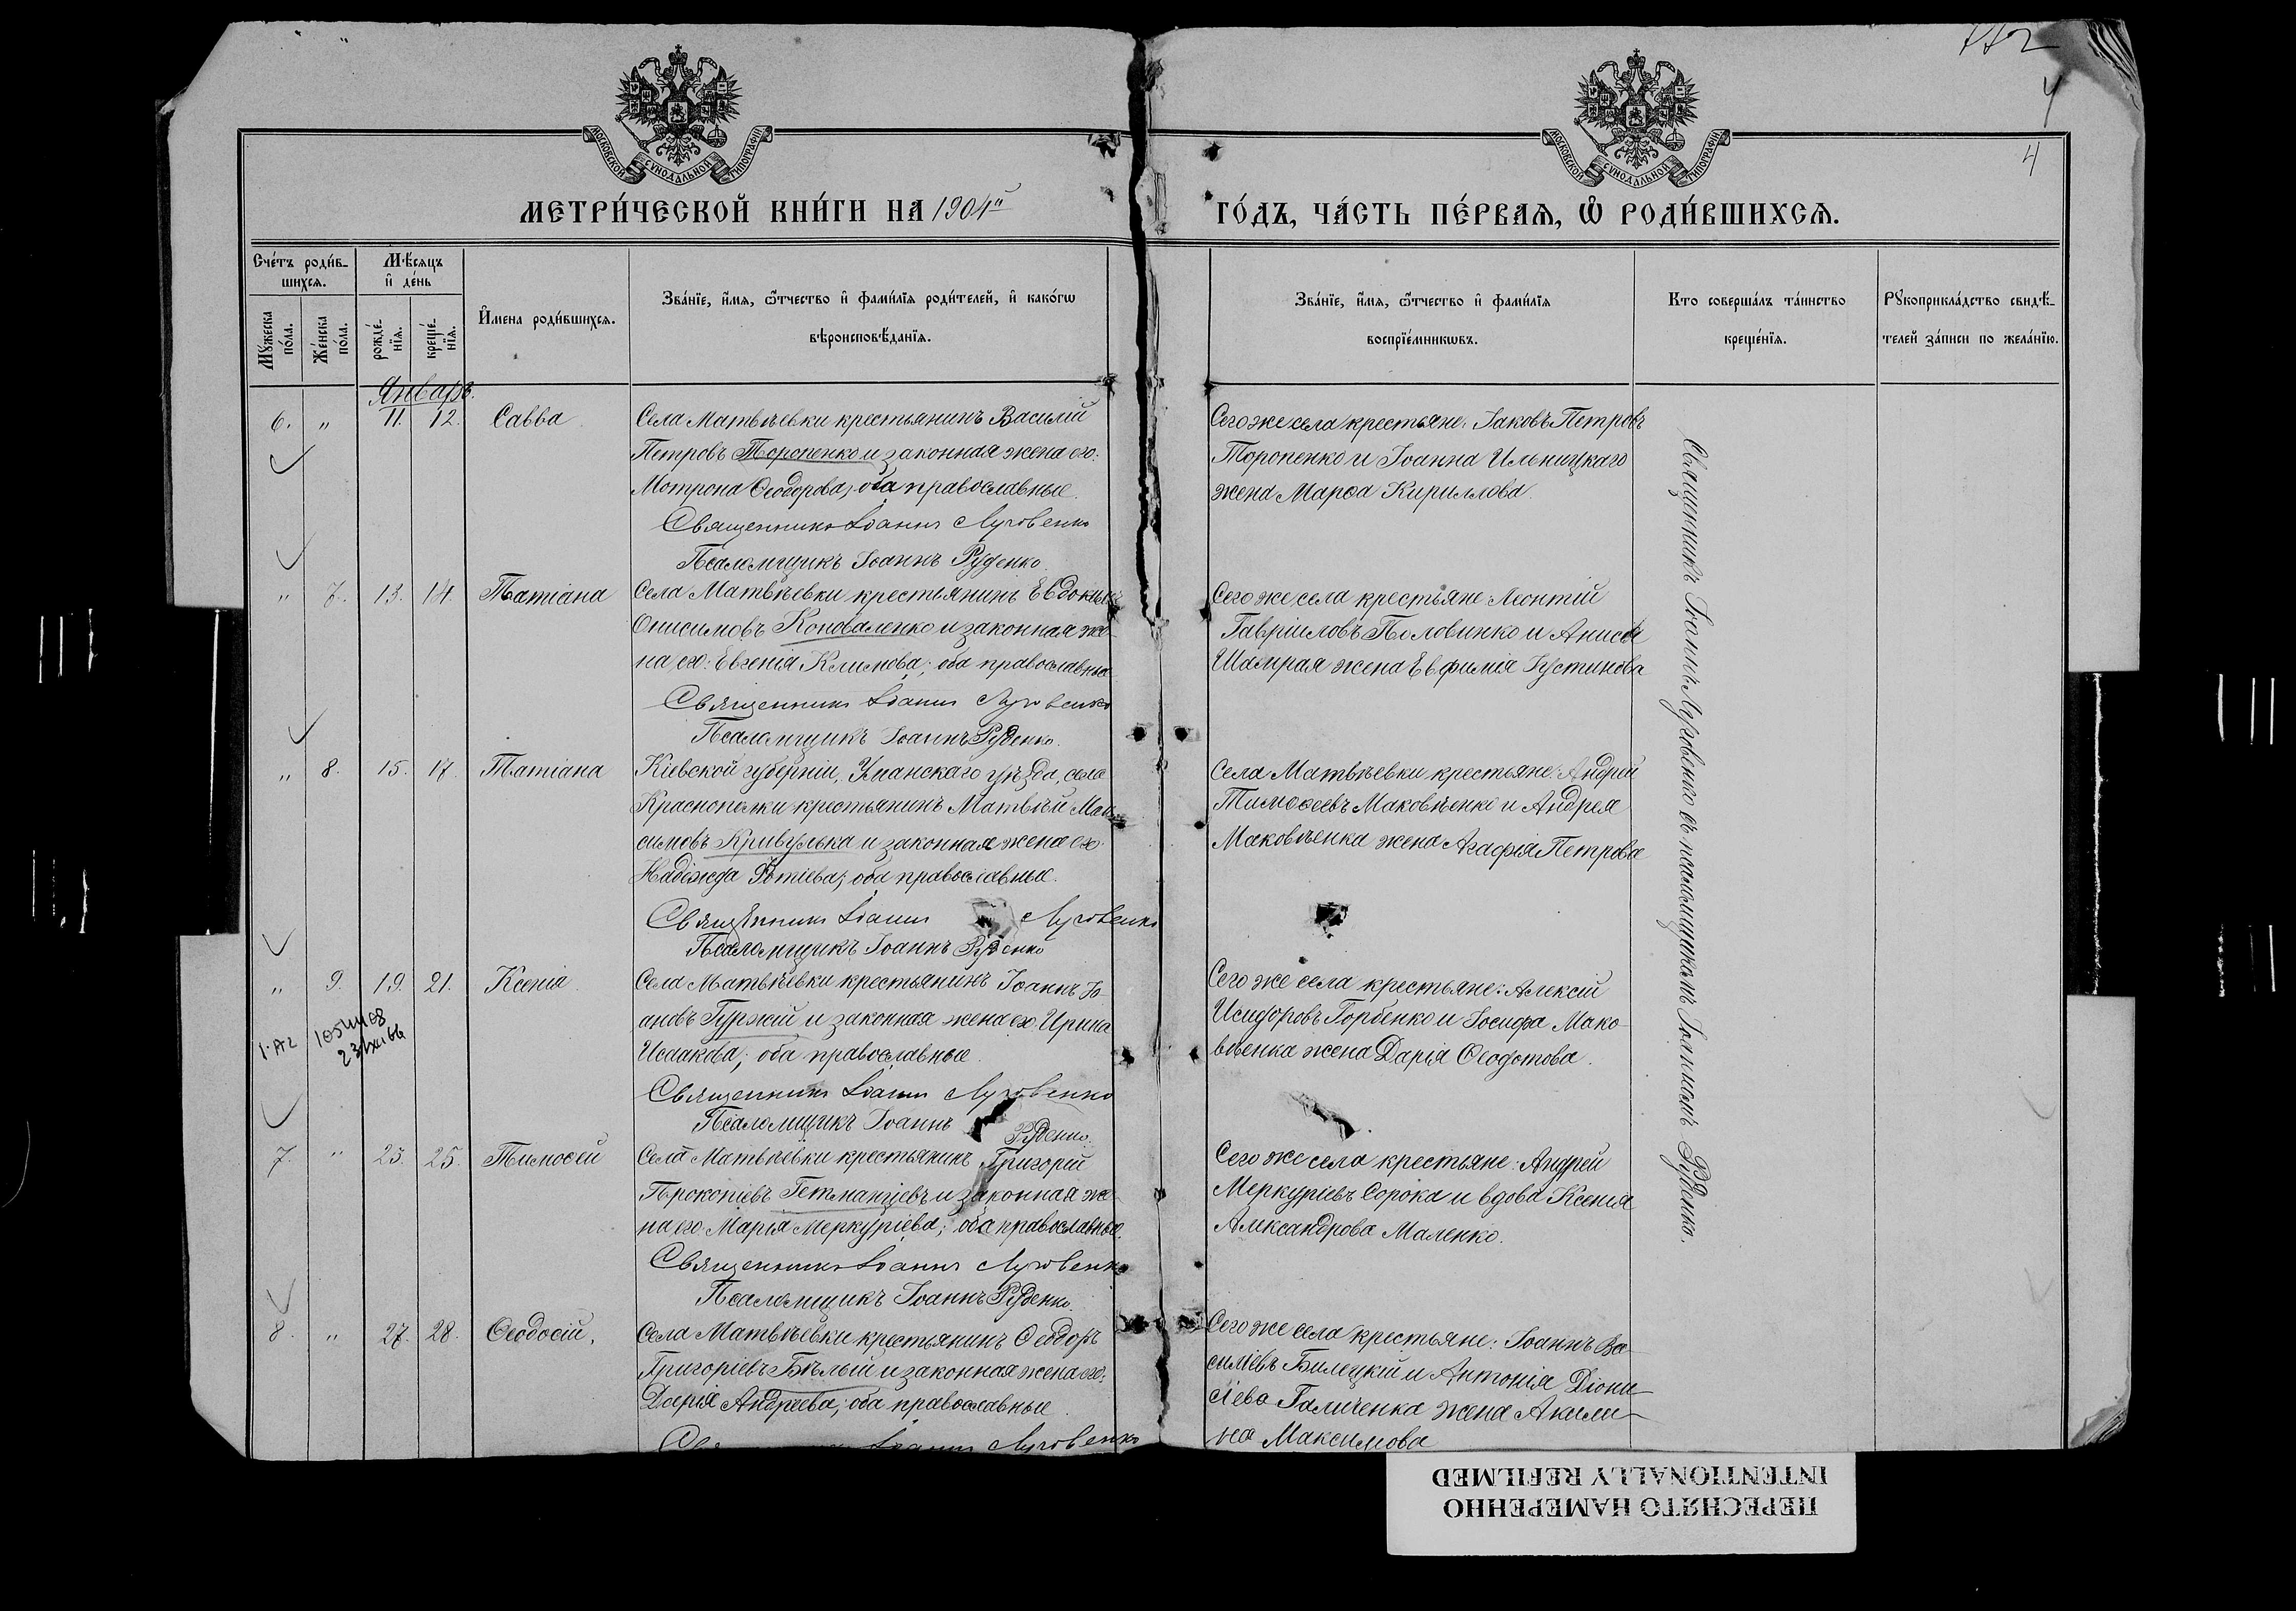 442
4
4
МОСКОВСКОЙ СѴНОДАЛЬНОЙ ТИПОГРАФІИ
МОСКОВСКОЙ СѴНОДАЛЬНОЙ ТИПОГРАФІИ
МЕТРИ́ЧЕСКОЙ КНИ́ГИ НА 1904й
ГО́ДЪ, ЧА́СТЬ ПЕ́РВАѦ, Ѡ҆ РОДИ́ВШИХСѦ.
Сче́тъ роди́в-
шихсѧ.
Мѣ́сѧцъ
и҆ де́нь
Мꙋ́жеска
по́ла.
Же́нска
по́ла.
рожде́-
нїѧ.
креще́-
нїѧ.
И҆мена роди́вшихсѧ.
Зва́нїе, и҆́мѧ, ѻ҆́тчество и҆ фами́лїѧ роди́телей, и҆ како́гѡ
вѣроисповѣ́данїѧ.
Зва́нїе, и҆́мѧ, ѻ҆́тчество и҆ фами́лїѧ
воспрїе́мникѡвъ.
Кто̀ соверша́лъ та́инство
креще́нїѧ.
Рꙋкоприкла́дство свидѣ́-
телей за́писи по жела́нїю.
Январь.
6. " 11. 12. Савва
Села Матвѣевки крестьянинъ Василій
Петровъ Торопенко и законная жена его:
Мотрона Ѳеодорова; оба православные.
Священникъ Іоаннъ Луговенко
Псаломщикъ Іоаннъ Руденко.
Сего же села крестьяне: Іаковъ Петровъ
Торопенко и Іоанна Ильницкаго
жена Марѳа Кириллова.
" 7. 13. 14. Татіана
Села Матвѣевки крестьянинъ Евдокимъ
Онисимовъ Коноваленко и законная же-
на его: Евгенія Климова; оба православные
Священникъ Іоаннъ Луговенко
Псаломщикъ Іоаннъ Руденко.
Сего же села крестьяне: Леонтій
Гавріиловъ Половинко и Анисія
Шамрая жена Евфимія Іустинова
" 8. 15. 17. Татіана
Кіевской губерніи, Уманскаго уѣзда, села
Краснополки крестьянинъ Матвѣй Мак-
симовъ Кривулька и законная жена его:
Надежда Фотіева; оба православные.
Священникъ Іоаннъ Луговенко
Псаломщикъ Іоаннъ Руденко
Села Матвѣевки крестьяне: Андрей
Тимоѳеевъ Маковѣенко и Андрея
Маковѣенка жена Агафія Петрова
" 9. 19. 21. Ксенія
Села Матвѣевки крестьянинъ Іоаннъ Іо-
ановъ Гуржій и законная жена его: Ирина
Исаакова; оба православные.
Священникъ Іоаннъ Луговенко
Псаломщикъ Іоаннъ Руденко.
Сего же села крестьяне: Алексій
Исидоровъ Горбенко и Іосифа Мако-
вѣенка жена Дарія Ѳеодотова.
7. " 23. 25. Тимоѳей
Села Матвѣевки крестьянинъ Григорій
Прокопіевъ Гетманцевъ и законная же-
на его: Марія Меркуріева; оба православные.
Священникъ Іоаннъ Луговенко
Псаломщикъ Іоаннъ Руденко.
Сего же села крестьяне: Андрей
Меркуріевъ Сорока и вдова Ксенія
Александрова Маленко.
8. " 27. 28. Ѳеодосій.
Села Матвѣевки крестьянинъ Ѳеодоръ
Григоріевъ Бѣлый и законная жена его:
Дарія Андреева; оба православные.
Іоаннъ Луговенко
Сего же села крестьяне: Іоаннъ Ва-
силіевъ Билецкій и Антонія Діони-
сіева Галиченка жена Акили-
на Максимова
Священникъ Іоаннъ Луговенко съ псаломщикомъ Іоанномъ Руденко.
ПЕРЕСНЯТО НАМЕРЕННО
INTENTIONALLY REFILMED